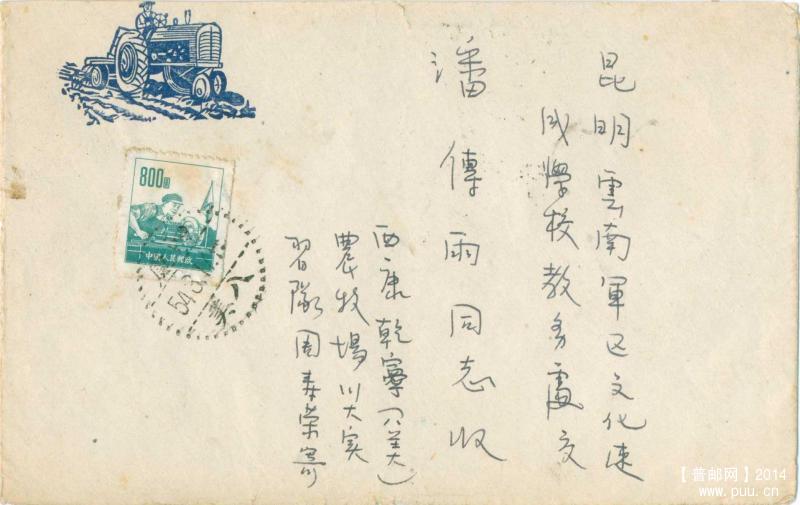 昆明雲南軍区文化速
成學校教务處交
潘傳雨同志收
西康乾寧(八美)
農牧場川大实
習隊周寿荣寄
800圆
中國人民郵政
54.8
八美
【普邮网】2014
www.puu.cn